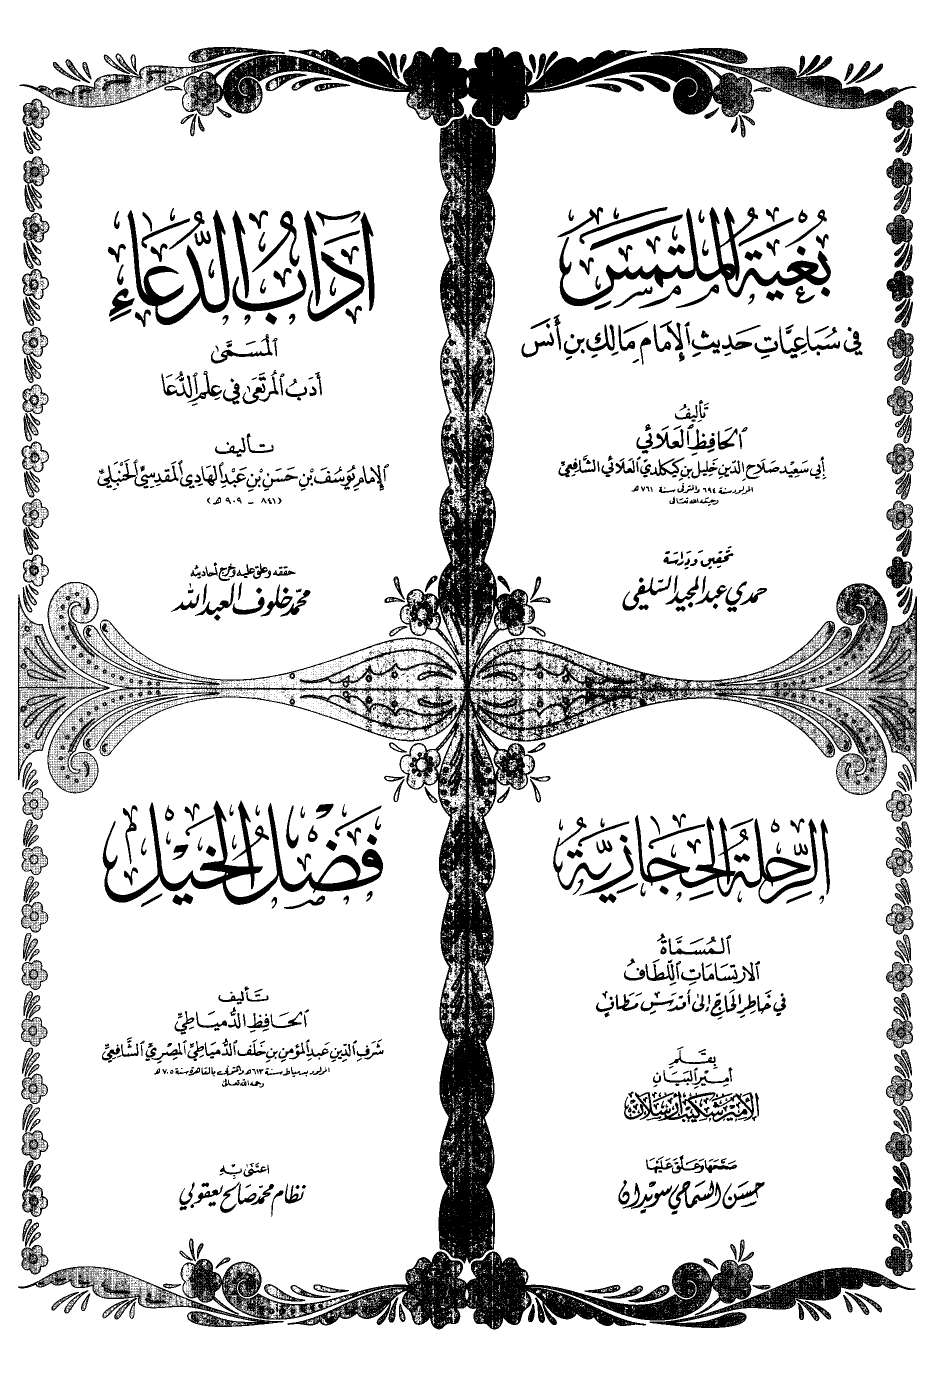 بُغْيَةُ المُلْتَمِسِ
في سُبَاعِيَّاتِ حَدِيثِ الإمَامِ مَالِكِ بنِ أَنَسَ
تأليفُ
الحَافِظِ العَلَائي
أبي سَعِيْد صَلَاح الدّين خَليل بن كيكلدي العَلائي الشَّافِعِيّ
المولود سنة ٦٩٤ والمتوفى سنة ٧٦١ هـ
رحمه الله تعالى
تحقيق ودراسة
حمدي عبد المجيد السّلفي
آدَابُ الدُّعَاءِ
المُسَمَّىٰ
أَدَبُ المُرتَعَىٰ في عِلْمِ الدُّعَا
تأليف
الإمَام يُوسُفَ بْنِ حَسَنِ بْنِ عَبْدِ الهَادِي المَقْدِسِيِّ الحَنْبَلِيِّ
(٨٤١ - ٩٠٩ هـ)
حققه وعلق عليه وخرج أحاديثه
محمّد خلوف العبد الله
الرِّحْلَةُ الحِجَازِيَّةُ
المُسَمَّاةُ
الارتسَامَاتِ اللِّطَافُ
في خَاطِرِ الحَاجّ إلىٰ أقْدَسِ مَطَافٍ
بقَلَمِ
أمِيرِ البَيَانِ
الأمير شكيب أرسلان
صَحَّحَهَا وَعَلَّقَ عَلَيْهَا
حسن السماحي سويدان
فَضْلُ الخَيْلِ
تَأليف
الحَافِظِ الدُّميَاطِيِّ
شَرَفِ الدّينِ عَبدِ المؤمِنِ بن خَلَف الدُّميَاطِيِّ المِصْرِيِّ الشَّافِعِيِّ
المولود بدمياط سنة ٦١٣ هـ والمتوفى بالقاهرة سنة ٧٠٥ هـ
رحمه الله تعالى
اعتَنىٰ بِهِ
نظام محمّد صالح يعقوبي